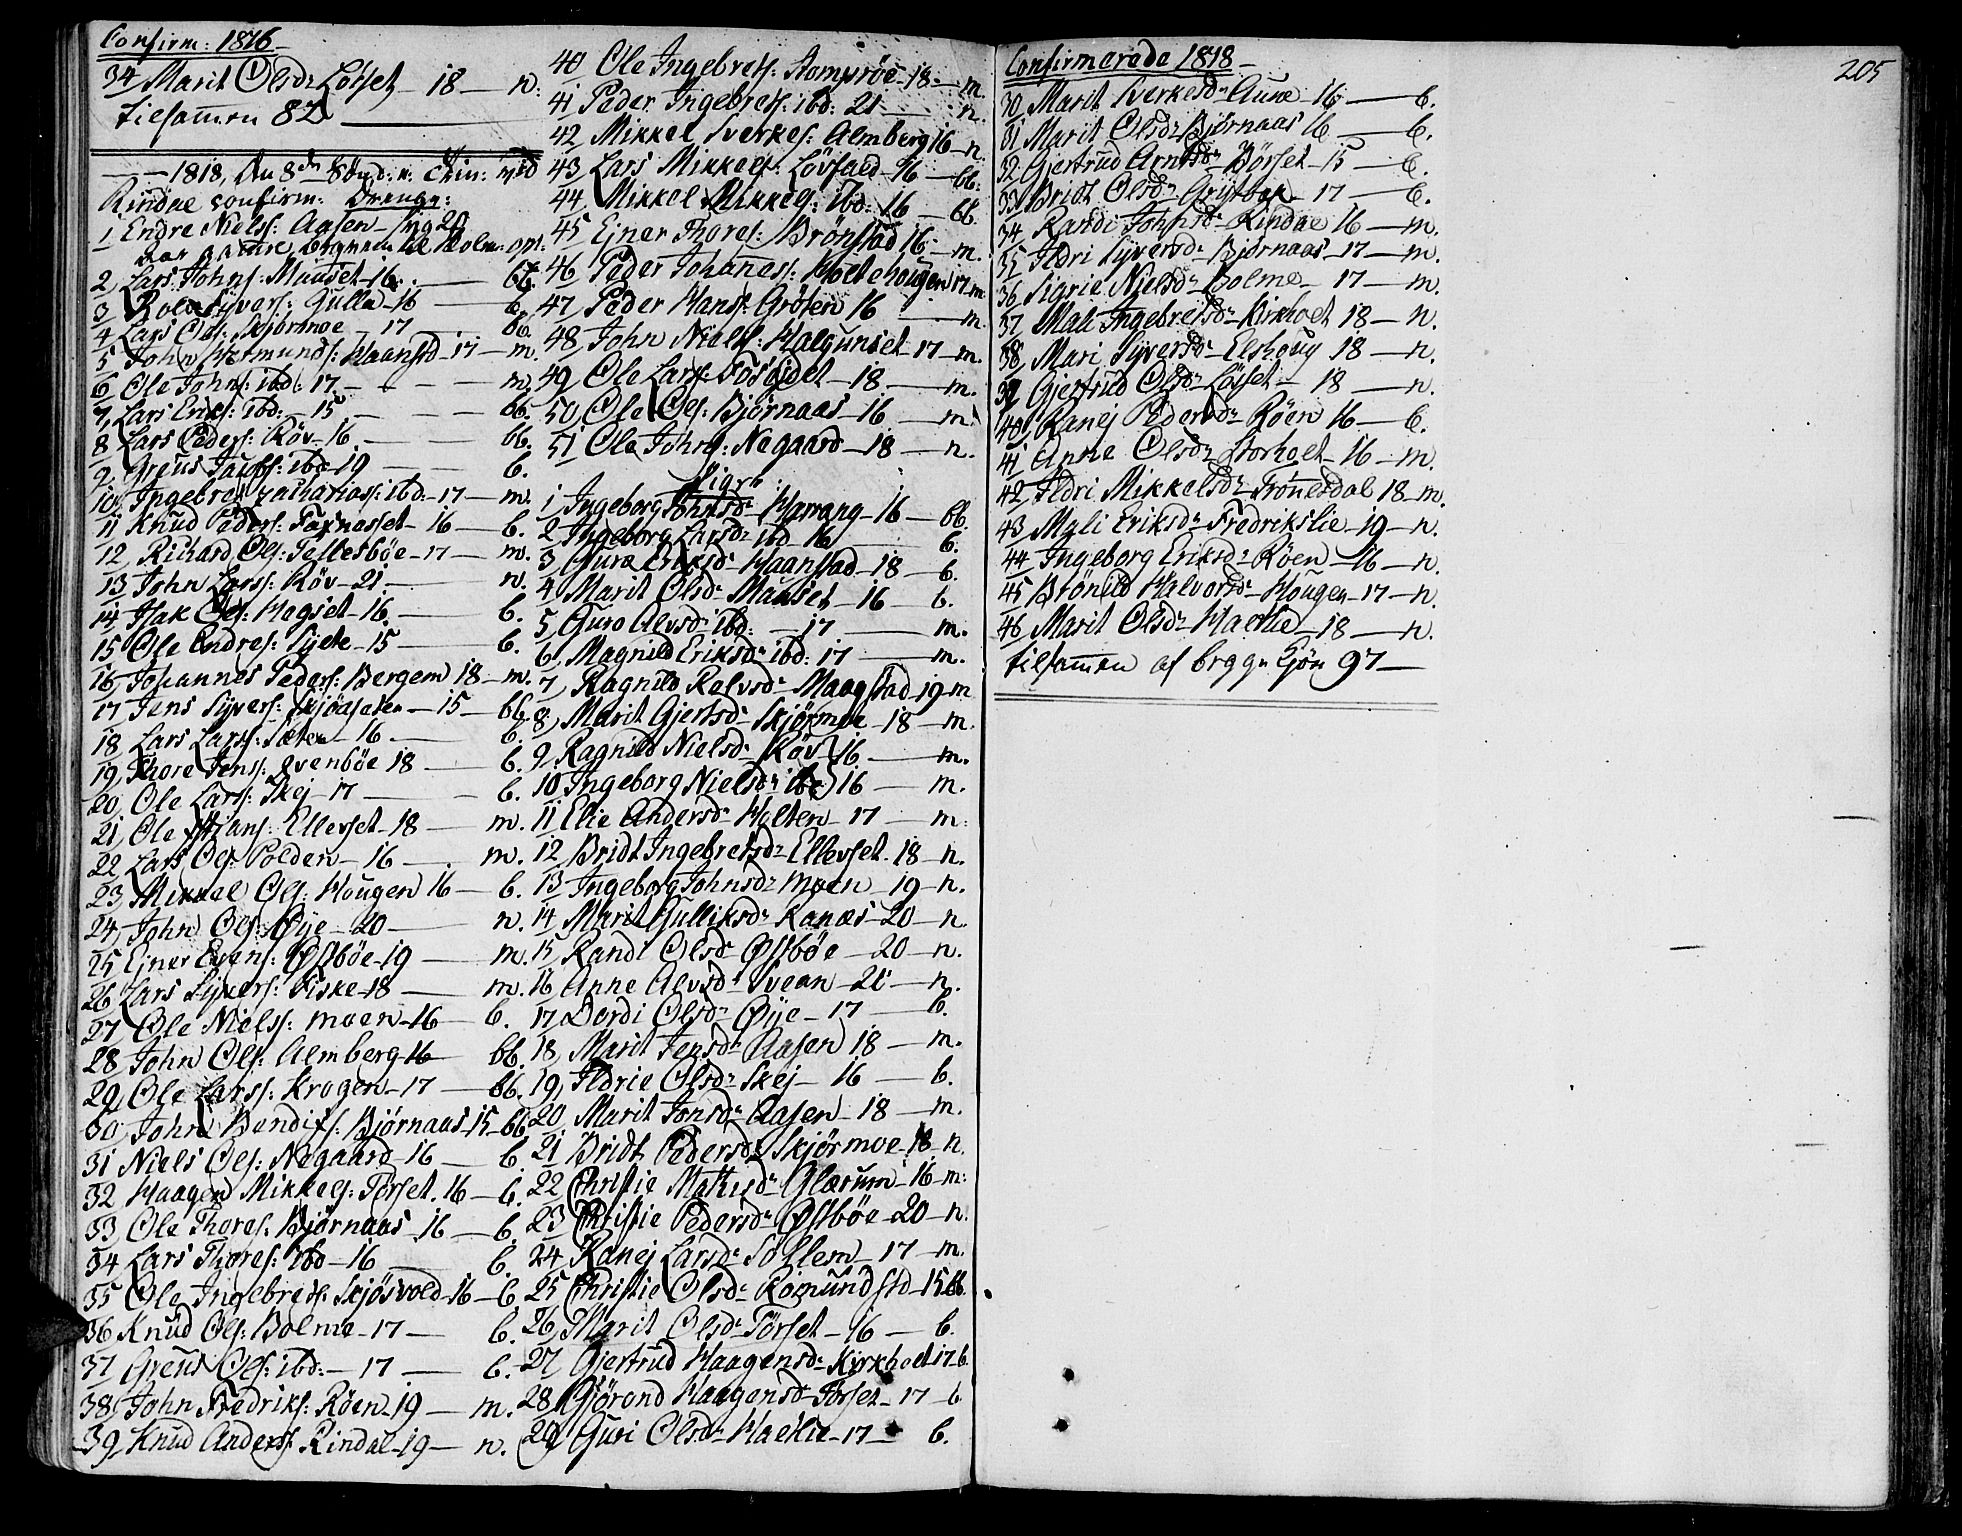 Confirm: 1816
34 Marit Olsd: Løsset 18 — n.
tilsammen 82
1818, den 8de Sønd:
Rindal confirm: Drenge:
1 Endre Niels: Aasen
2 Lars Johns: Mauset 16 — bb.
3 Rolv Syvers: Gulla 16 — b.
4 Lars Ols: Skjørmoe 17 — bb.
5 John Hermunds: Haanstd 17 — m.
6 Ole Johns: ibd: 17 — m.
7 Lars Eriks: ibd: 15 — bb.
8 Lars Peders: Røv 16 — bb.
9 Greus ibd 19 — b.
10 Ingebret Zacharias: ibd: 17 — m.
11 Knud Peders: 16 — b.
12 Richard Ols: Tellesbøe 17 — m.
13 John Larss: Røv 21 — n.
14 Isak Ols: Hagset 16 — b.
15 Ole Endres: 15 — b.
16 Johannes Peders: Bergem 18 — m.
17 Jens Syvers: 15 — bb.
18 Lars Larss: Sæter 16 — b.
19 Thore Jens: Evenbøe 18 — b.
20 Ole Larss: Skej 17 — b.
21 Ole Hans: Ellevset 18 — m.
22 Lars Ols: Polden 16 — m.
23 Mikkel Ols: Hougen 16 — b.
24 John Ols: Øye 20 — n.
25 Ejner Evens: Østbøe 19 — m.
26 Lars Syvers: Fiske 18 — m.
27 Ole Nielss: Moen 16 — b.
28 John Ols: Almberg 16 — bb.
29 Ole Larss: Krogen 17 — bb.
30 John Bendixs: Bjørnaas 15 — bb.
31 Niels Ols: Negaard 16 — b.
32 Haagen Mikkels: Tørset 16 — b.
33 Ole Thores: Bjørnaas 16 — b.
34 Lars Thores: ibd 16 — b.
35 Ole Ingebrets: Skjøsvold 16 — b
36 Knud Ols: Bolme 17 — b.
37 Greus Ols: ibd: 17 — b.
38 John Fredriks: Røen 19 — m.
39 Knud Anders: Rindal 19 — n.
40 Ole Ingebrets: Stomprøe 18 — m.
41 Peder Ingebrets: ibd: 21 — n.
42 Mikkel Sverkes: Almberg 16 — n.
43 Lars Mikkels: Løvfald 16 — bb.
44 Mikkel Mikkels: ibd: 16 — bb.
45 Ejner Thores: Brønstad 16 — m.
46 Peder Johanes: Holtehougen 17 m
47 Peder Hans: Grøten 16 — m.
48 John Niels: Halgunset 17 — m.
49 Ole Lars: 18 — m.
50 Ole Ols: Bjørnaas 16 — m.
51 Ole Johns: Negaard 18 — n.
Piger:
1 Ingeborg Johnsd: Harrang 16 — bb.
2 Ingeborg Larsd: ibd 16 — b.
3 Guro Eriksd: Haanstad 18 — b.
4 Marit Olsd: Mauset 16 — b.
5 Guro Alvsd: ibd: 17 — m.
6 Magnild Eriksd: ibd: 17 — m.
7 Ragnild Rolvsd: Haanstad 19 m
8 Marit Gjertsd: Skjørmoe 18 — m.
9 Ragnild Nielsd: Røv 16 — m.
10 Ingeborg Nielsd: ibd 16 — m.
11 Elie Andersd: Holten 17 — m:
12 Bridt Ingebretsd: Ellevset 18 n.
13 Ingeborg Johnsd: Moen 19 n.
14 Marit Gulliksd: Kanæs 20 n.
15 Randi Olsd: Østbøe 20 n.
16 Anne Alvsd: Svean 21 — n.
17 Dordi Olsd: Øye 17 — b.
18 Marit Jensd: Aasen 18 — m.
19 Ildrie Olsd: Skej 16 — b.
20 Marit Jonsd: Aasen 18 — m.
21 Bridt Pedersd: Skjørmoe 18 n.
22 Christie Mathisd: Glærum 16 m:
23 Christie Pedersd: Østbøe 20 n.
24 Ranej Larsd: Sollem 17 — m.
25 Christie Olsd: Romundstd 15 bb.
26 Marit Olsd: Tørset 16 — b.
27 Gjertrud Haagensd: Kirkholt 17 b.
28 Gjørond Haagensd: Tørset 17 b
29 Guri Olsd: Hælie 17 — b.
Confirmerede 1818
205
30 Marit Sverkesd: Aune 16 — b.
31 Marit Olsd: Bjørnaas 16 — b.
32 Gjertrud Arntsd: Børset 15 — b.
33 Bridt Olsd: Grytbak 17 — b.
34 Randi Johnsd: Rindal 16 — m.
35 Ildri Syversd: Bjørnaas 17 — m.
36 Sigrie Nielsd: Bolme 17 — m.
37 Mali Ingebretsd: Kirkholt 18 — n.
38 Mari Syversd: Elshoug 18 — n.
39 Gjertrud Olsd: Løsset 18 — n.
40 Ranej Pedersd: Røen 16 — b.
41 Anne Olsd: Storholt 16 — m.
42 Ildri Mikkelsd: Tronesdal 18 m.
43 Mali Eriksd: Fredrikslie 19 n.
44 Ingeborg Eriksd: Røen 16 — n.
45 Brønild Halvorsd: Hougen 17 n.
46 Marit Olsd: Hælie 18 — n.
tilsammen af begge Kjøn 97